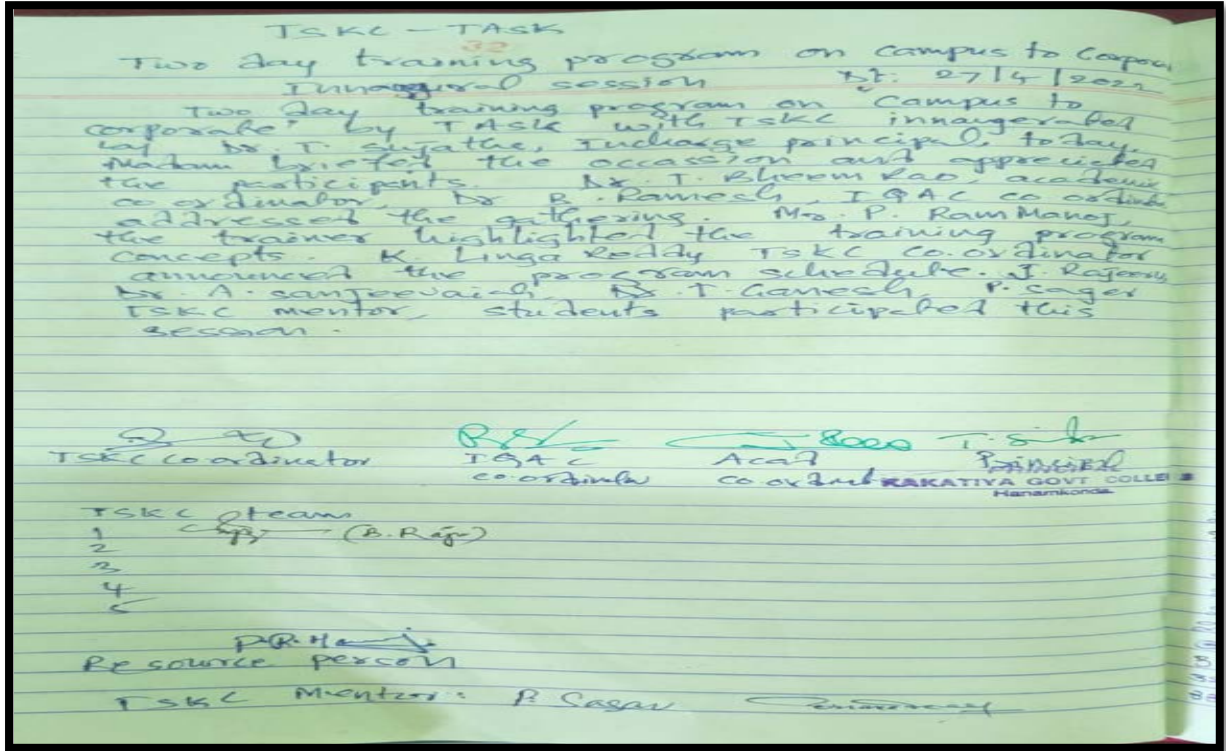 TSKC - TASK
32
Two day training program on Campus to Corpora
Innaugural session Dt: 27/4/2022
Two day training program on "Campus to
corporate" by TASK with TSKC innaugerated
by Dr. T. Sujatha, Incharge principal, today.
Madam briefed the occassion and appreciated
the participants. Dr. T. Bheem Rao, academic
co ordinator, Dr B. Ramesh, IQAC co ordina
addressed the gathering. Mr. P. Ram Manoj,
the trainer highlighted the training program
concepts. K. Linga Reddy TSKC co.ordinator
announced the program schedule. J. Rajeeru
Dr. A. sanjeevaiah, Dr. T. Ganesh, P. Sager
TSKC mentor, students participated this
session.
TSKC co ordinator IQAC Acad Principal
co.ordinator co ordinat KAKATIYA GOVT COLLE
Hanamkonda
TSKC team
1 (B. Raju)
2
3
4
5
P.R.M
Resource person
TSKC Mentor: P. Sagar